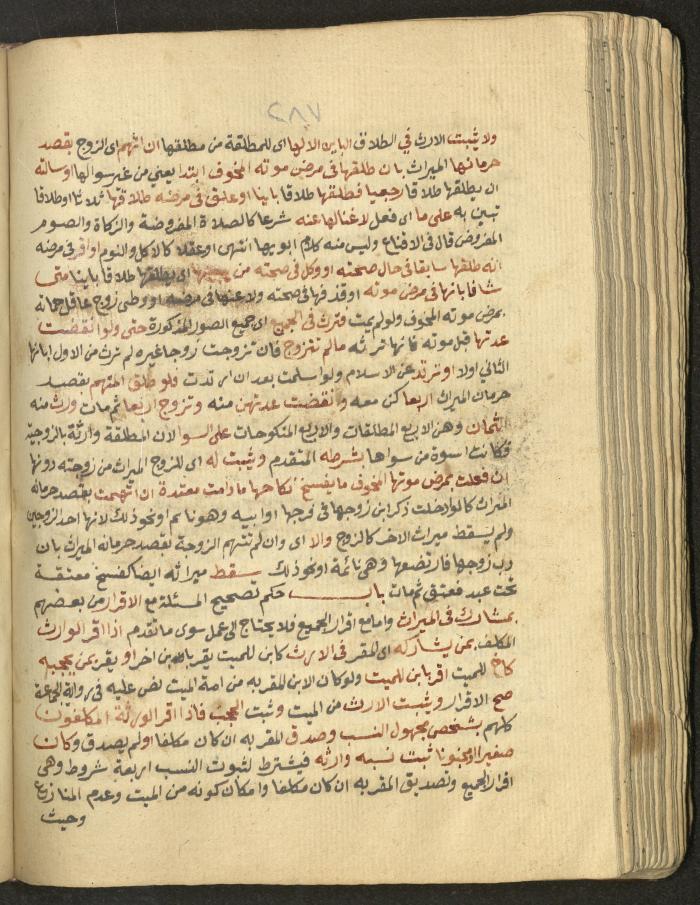 ٢٨٧
ولا يثبت الارث في الطلاق الباين الا لها اى للمطلقة من مطلقها ان اتهم اى الزوج بقصد
حرمانها الميراث بان طلقها في مرض موته المخوف ابتدا يعني من غير سوالها او سالته
ان يطلقها طلاقا رجعيا فطلقها طلاقا باينا او علق في مرضه طلاقها ثلاثا او طلاقا
تبين به على ما اى فعل لا غنا لها عنه شرعا كالصلاة المفروضة والزكاة والصوم
المفروض قال في الاقناع وليس منه كلام ابويها انتهى او عقلا كالاكل والنوم او اقر في مرضه
انه طلقها سابقا في حال صحته او وكل في صحته من يبينها اى يطلقها طلاقا باينا متى
شا فابانها في مرض موته او قذفها في صحته ولاعنها في مرضه او وطى زوج عاقل حماته
بمرض موته المخوف ولو لم يمت فترث في الجميع اى جميع الصور المذكورة حتى ولو انقضت
عدتها قبل موته فانها ترثه مالم تتزوج فان تزوجت زوجا غيره لم ترث من الاول ابانها
الثاني اولا او ترتد عن الاسلام ولو اسلمت بعد ان ارتدت فلو طلق المتهم بقصد
حرمان الميراث اربعا كن معه وانقضت عدتهن منه وتزوج اربعا ثم مات ورث منه
الثمان وهن الاربع المطلقات والاربع المنكوحات على السوا لان المطلقة وارثة بالزوجية
فكانت اسوة من سواها بشرطه المتقدم ويثبت له اى للزوج الميراث من زوجته دونها
ان فعلت بمرض موتها المخوف ما يفسخ نكاحها مادامت معتدة ان اتهمت بقصد حرمانه
الميراث كما لو ادخلت ذكر ابن زوجها في فرجها او ابيه وهو نائم او نحو ذلك لانها احد الزوجين
ولم يسقط ميراث الاخر كالزوج والا اى وان لم تتهم الزوجة لقصد حرمانه الميراث بان
دب زوجها فارتضعها وهي نائمة او نحو ذلك سقط ميراثه ايضا كفسخ معتقة
تحت عبد فعتق ثم مات باب حكم تصحيح المسئلة مع الاقرار من بعضهم
بمشارك في الميراث واما مع اقرار الجميع فلا يحتاج الى عمل سوى ما تقدم اذا اقر الوارث
المكلف بمن يشاركه اى المقر في الارث كابن للميت يقر بابن اخر او يقر بمن يحجبه
كاخ للميت اقر بابن للميت ولو كان الابن المقر به من امة الميت نص عليه في رواية الجماعة
صح الاقرار ويثبت الارث من الميت وثبت الحجب فاذا اقر الورثة المكلفون
كلهم بشخص مجهول النسب وصدق المقر به ان كان مكلفا او لم يصدق وكان
صغيرا او مجنونا ثبت نسبه وارثه فيشترط لثبوت النسب اربعة شروط وهي
اقرار الجميع وتصديق المقر به ان كان مكلفا وامكان كونه من الميت وعدم المنازع
وحيث